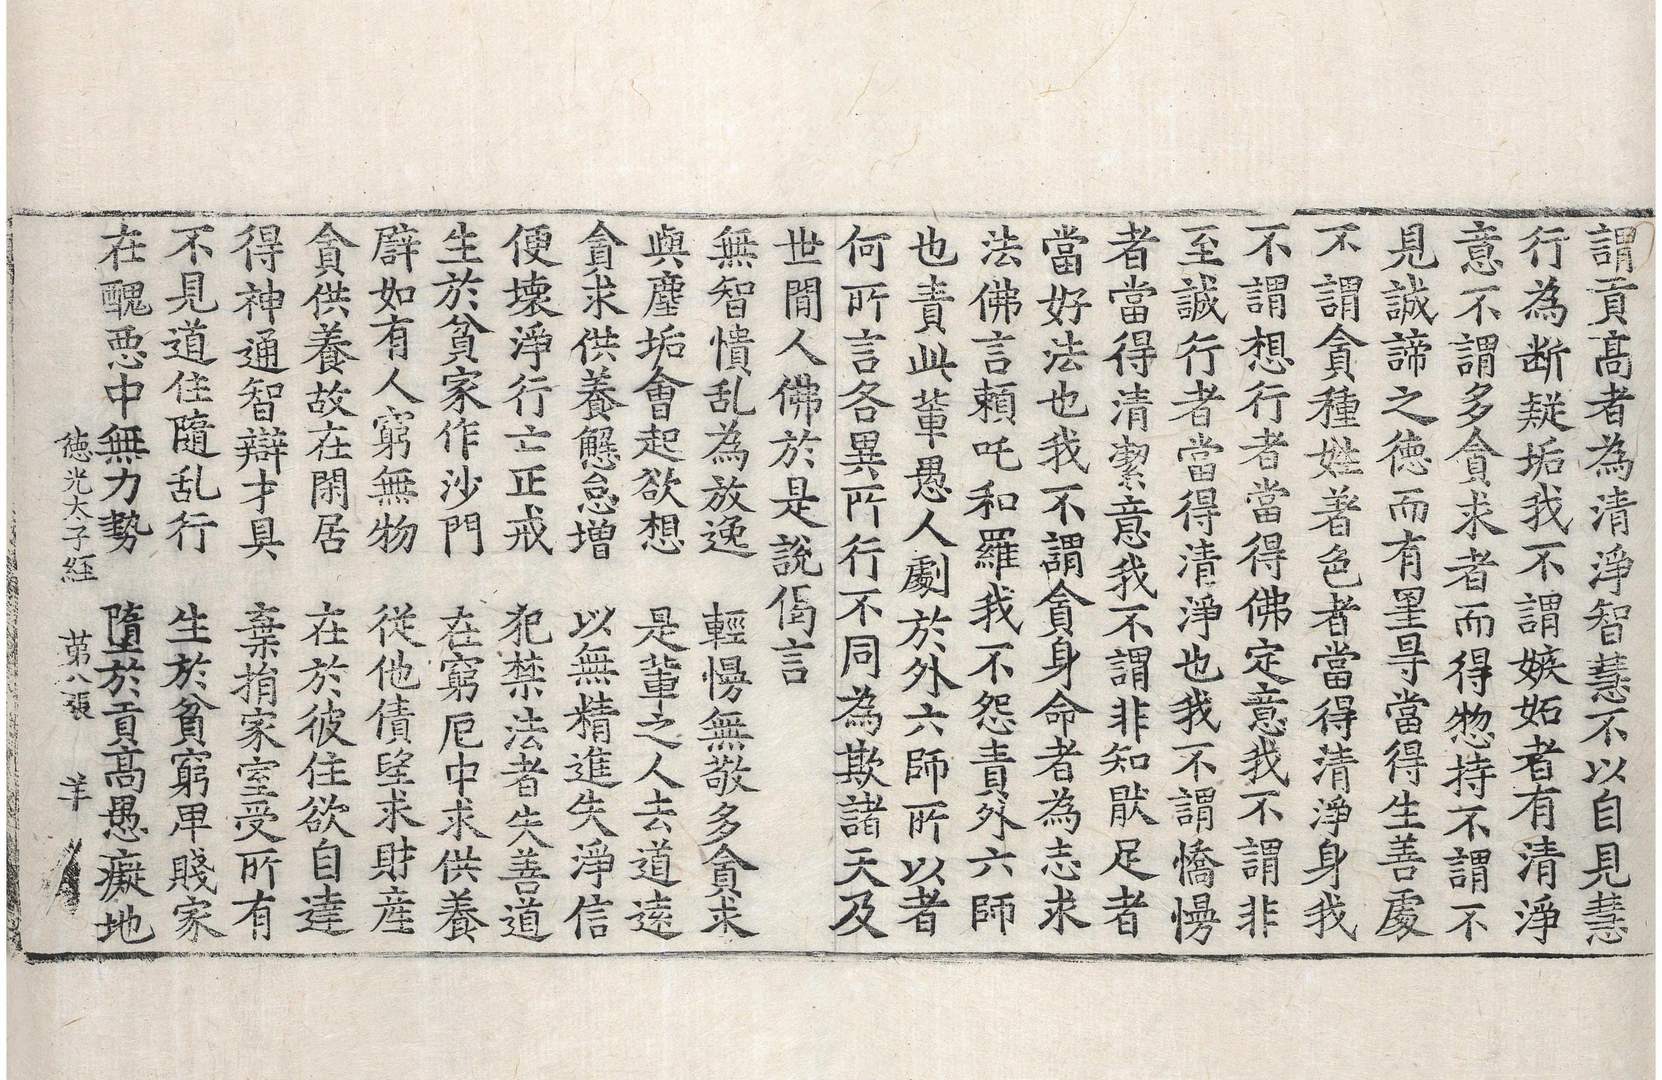 謂貢高者為清淨智慧不以自見慧
行為断疑垢我不謂嫉妬者有清淨
意不謂多貪求者而得惣持不謂不
見誠諦之徳而有罣导當得生善處
不謂貪種姓著色者當得清淨身我
不謂想行者當得佛定意我不謂非
至誠行者當得清淨也我不謂憍慢
者當得清潔意我不謂非知猒足者
當好法也我不謂貪身命者為志求
法佛言頼吒和羅我不怨責外六師
也責此輩愚人劇於外六師所以者
何所言各異所行不同為欺諸天及
世間人佛於是說偈言
無智憒乱為放逸　輕慢無敬多貪求
與塵垢會起欲想　是輩之人去道逺
貪求供養懈怠增　以無精進失淨信
便壞淨行亡正戒　犯禁法者失善道
生於貧家作沙門　在窮厄中求供養
譬如有人窮無物　從他債望求財産
貪供養故在閑居　在於彼住欲自達
得神通智辯才具　棄捐家室受所有
不見道住隨乱行　生於貧窮卑賤家
在醜悪中無力勢　墮於貢高愚癡地
徳光太子経　苐八張　羊